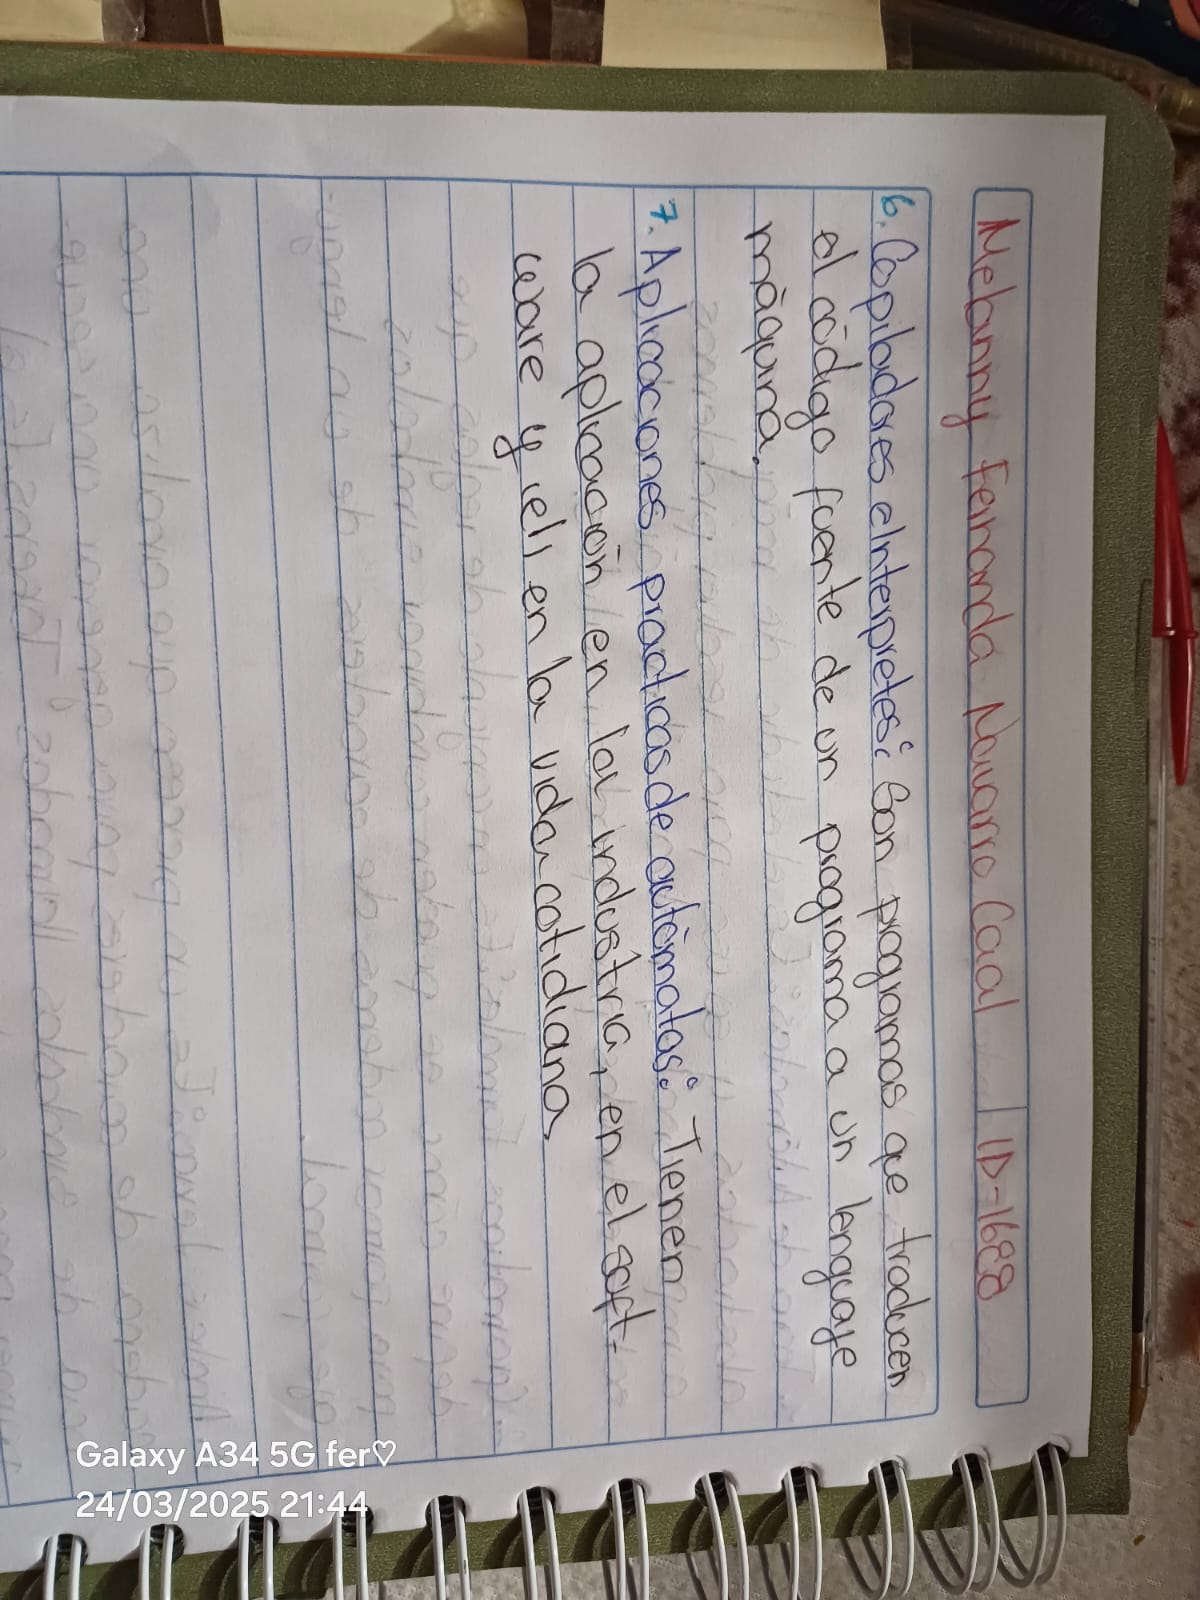 Melanny Fernanda Navarro Caal ID=1688
6. Copiladores e Interpretes: Son programas que traducen
el código fuente de un programa a un lenguaje
máquina.
7. Aplicaciones practicas de autómatas: Tienen
la aplicación en la industria, en el soft-
ware y el en la vida cotidiana.
Galaxy A34 5G fer♡
24/03/2025 21:44